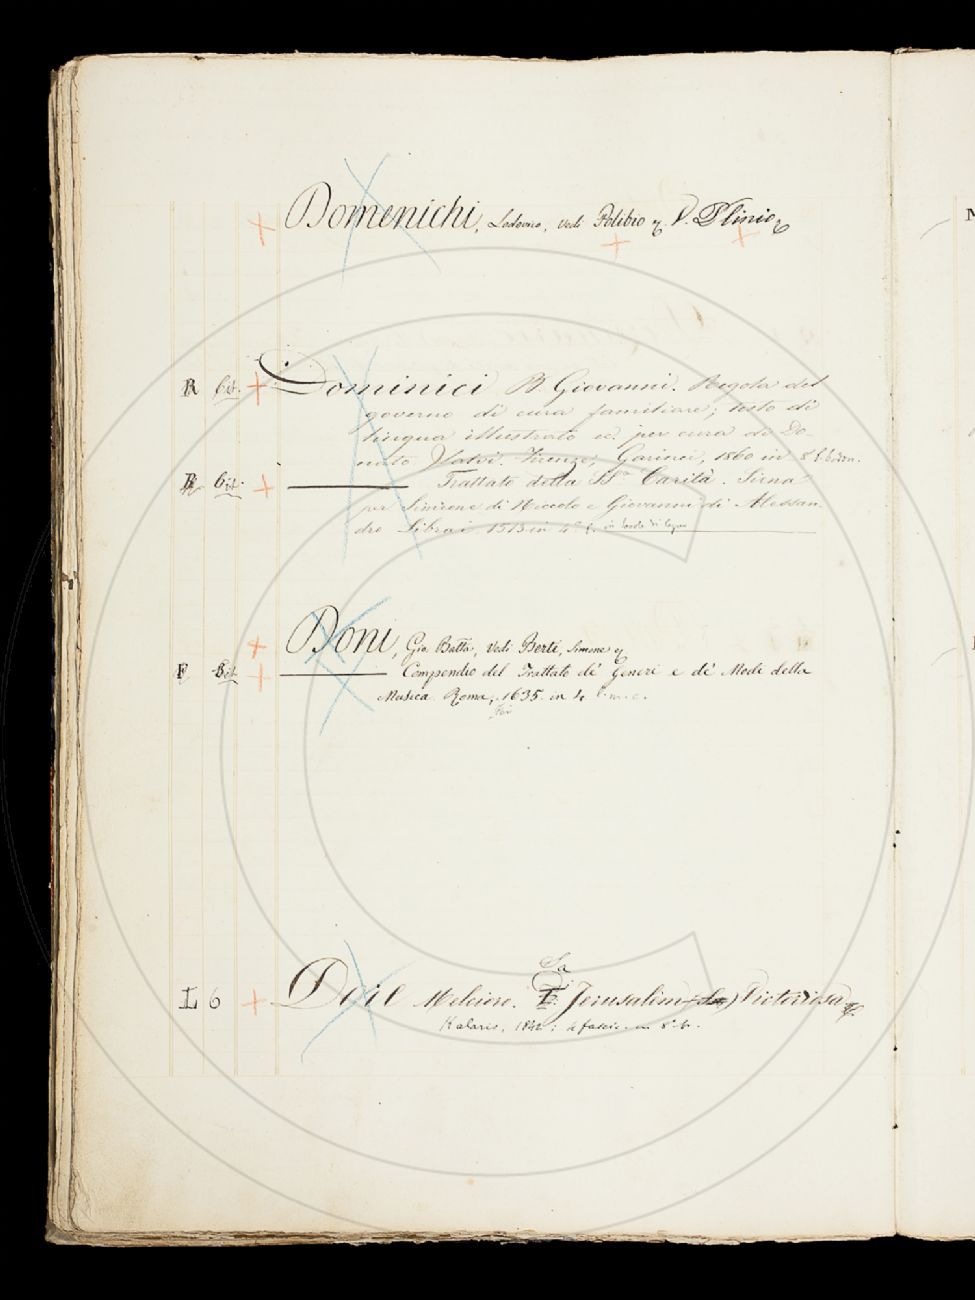 Domenichi, Lodovico, vedi Polibio e V. Plinio
R bit. Dominici B. Giovanni. Regola del
governo di cura familiare; testo di
lingua illustrato ec. per cura di Do-
nato Salvi. Firenze, Garinei, 1860 in 8
bit. Trattato della SSa Carità. Siena
per Simione di Niccolo e Giovanni di Alessan-
dro Librai 1513 in 4º in tavole di legno
Doni, Gio. Batta, vedi Berti, Simone
F bit. Compendio del Trattato de' Generi e de' Modi della
Musica. Roma, 1635. in 4
Fei
La
L 6 Doil Melcioro. Jerusalem Victoriosa
Kalaris, 1842: 4 fascic. in 8º